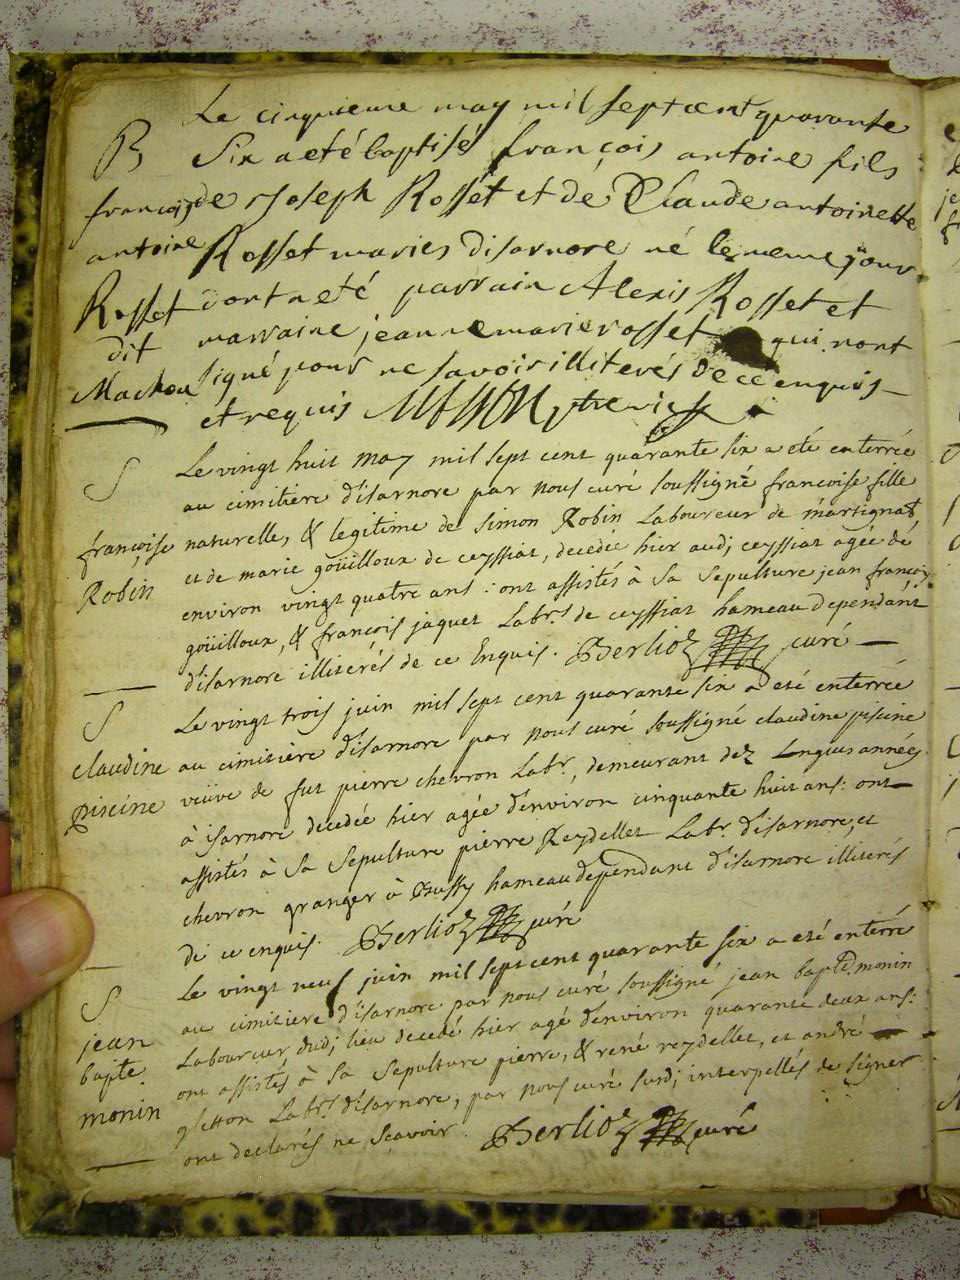 Le cinquieme may mil sept cent quarante
B
Six a eté baptisé françois antoine fils
françois
de Joseph Rosset et de Claude antoinette
antoine
Rosset maries disarnore né le meme jour
Rosset
dont a eté parrain Alexis Rosset et
dit
marraine jeanne marie rosset qui n'ont
Machou
signé pour ne savoir illiterés de ce enquis
et requis
S
Le vingt huit may mil sept cent quarante six a eté enterrée
au cimitiere d'isarnore par nous curé soussigné françoise fille
françoise
naturelle, & legitime de Simon Robin Laboureur de martignat
Robin
et de marie goüilloux de ceyssiat, decedée hier audj ceyssiat agée de
environ vingt quatre ans : ont assistés à Sa Sepulture jean françois
goüilloux, & françois jaquet Labrs. de ceyssiat hameau dependant
d'isarnore illiterés de ce Enquis. Berlioz curé
S
Le vingt trois juin mil sept cent quarante six a eté enterrée
claudine
au cimitiere d'isarnore par nous curé soussigné claudine piscine
piscine
veüve de fut pierre chevron Labr., demeurant dez Longues années
à isarnore decedée hier agée d'environ cinquante huit ans : ont
assistés à Sa Sepulture pierre Reydellet Labr. d'isarnore, et
chevron granger à Bussy hameau dependant d'isarnore illiterés
de ce enquis. Berlioz curé
S
Le vingt neuf juin mil sept cent quarante six a eté enterré
jean
au cimitiere d'isarnore par nous curé soussigné jean bapte. monin
bapte.
Laboureur dudj lieu decedé hier agé d'environ quarante deux ans :
monin
ont assistés à Sa Sepulture pierre, & rené reydellet, et andré
Labrs. d'isarnore, par nous curé susdj interpellés de signer
ont declarés ne Sçavoir. Berlioz curé